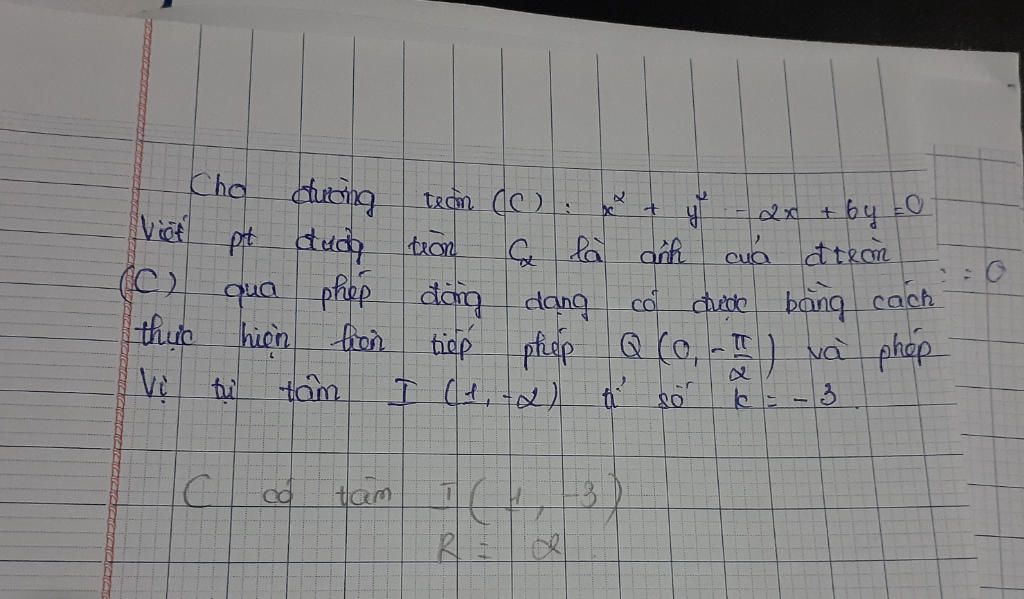 Cho đường tròn (C): x² + y² - 2x + 6y = 0
Viết pt đường tròn C₂ là ảnh của đtròn
(C) qua phép đồng dạng có được bằng cách : = 0
thực hiện liên tiếp phép Q (0, -π/2) và phép
Vị tự tâm I (1, -2) tỉ số k = -3
C có tâm I (1, -3)
R = 2